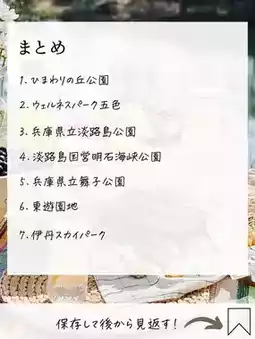 まとめ
1. ひまわりの丘公園
2. ウェルネスパーク五色
3. 兵庫県立淡路島公園
4. 淡路島国営明石海峡公園
5. 兵庫県立舞子公園
6. 東遊園地
7. 伊丹スカイパーク
保存して後から見返す!